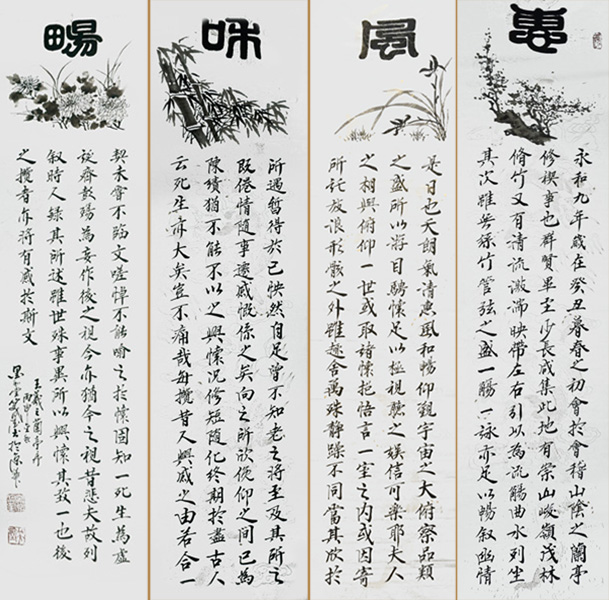 惠
永和九年歲在癸丑暮春之初會於會稽山陰之蘭亭
修禊事也群賢畢至少長咸集此地有崇山峻嶺茂林
脩竹又有清流激湍映帶左右引以為流觴曲水列坐
其次雖無絲竹管弦之盛一觴一詠亦足以暢叙幽情
風
是日也天朗氣清惠風和暢仰觀宇宙之大俯察品類
之盛所以游目騁懷足以極視聽之娛信可樂耶夫人
之相與俯仰一世或取諸懷抱悟言一室之內或因寄
所託放浪形骸之外雖趣舍萬殊靜躁不同當其欣於
咊
所遇暫得於己怏然自足曾不知老之將至及其所之
既倦情隨事遷感慨係之矣向之所欣俛仰之間已為
陳蹟猶不能不以之興懷況脩短隨化終期於盡古人
云死生亦大矣豈不痛哉每攬昔人興感之由若合一
畼
契未嘗不臨文嗟悼不能喻之於懷固知一死生為虛
誕齊彭殤為妄作後之視今亦猶今之視昔悲夫故列
叙時人錄其所述雖世殊事異所以興懷其致一也後
之攬者亦將有感於斯文
王羲之蘭亭序